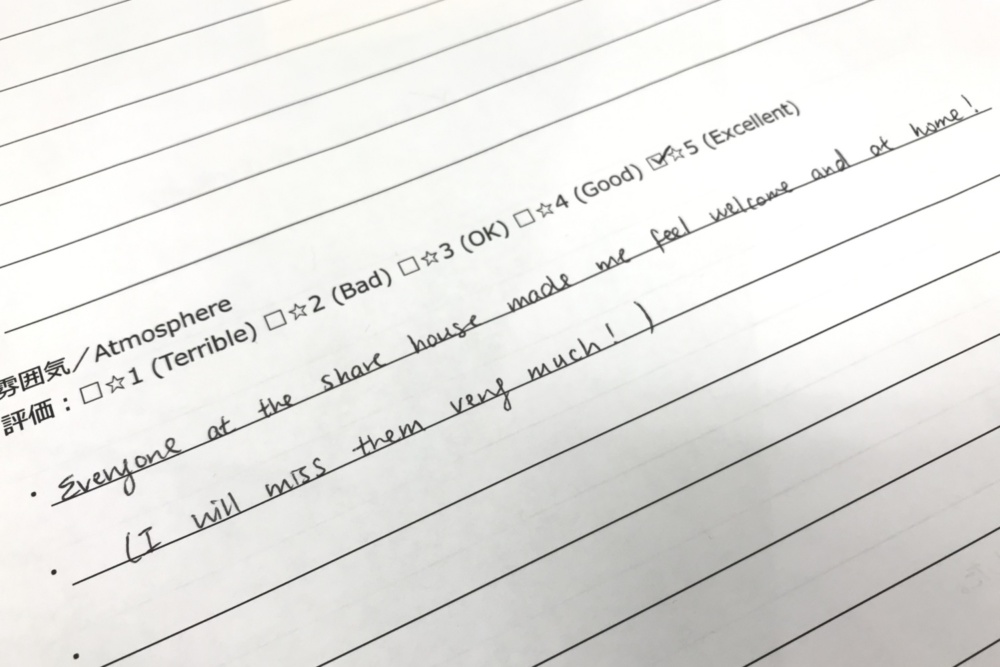 雰囲気／Atmosphere
評価：□☆1 (Terrible) □☆2 (Bad) □☆3 (OK) □☆4 (Good) ☑☆5 (Excellent)
・Everyone at the share house made me feel welcome and at home!
・(I will miss them very much!)
・